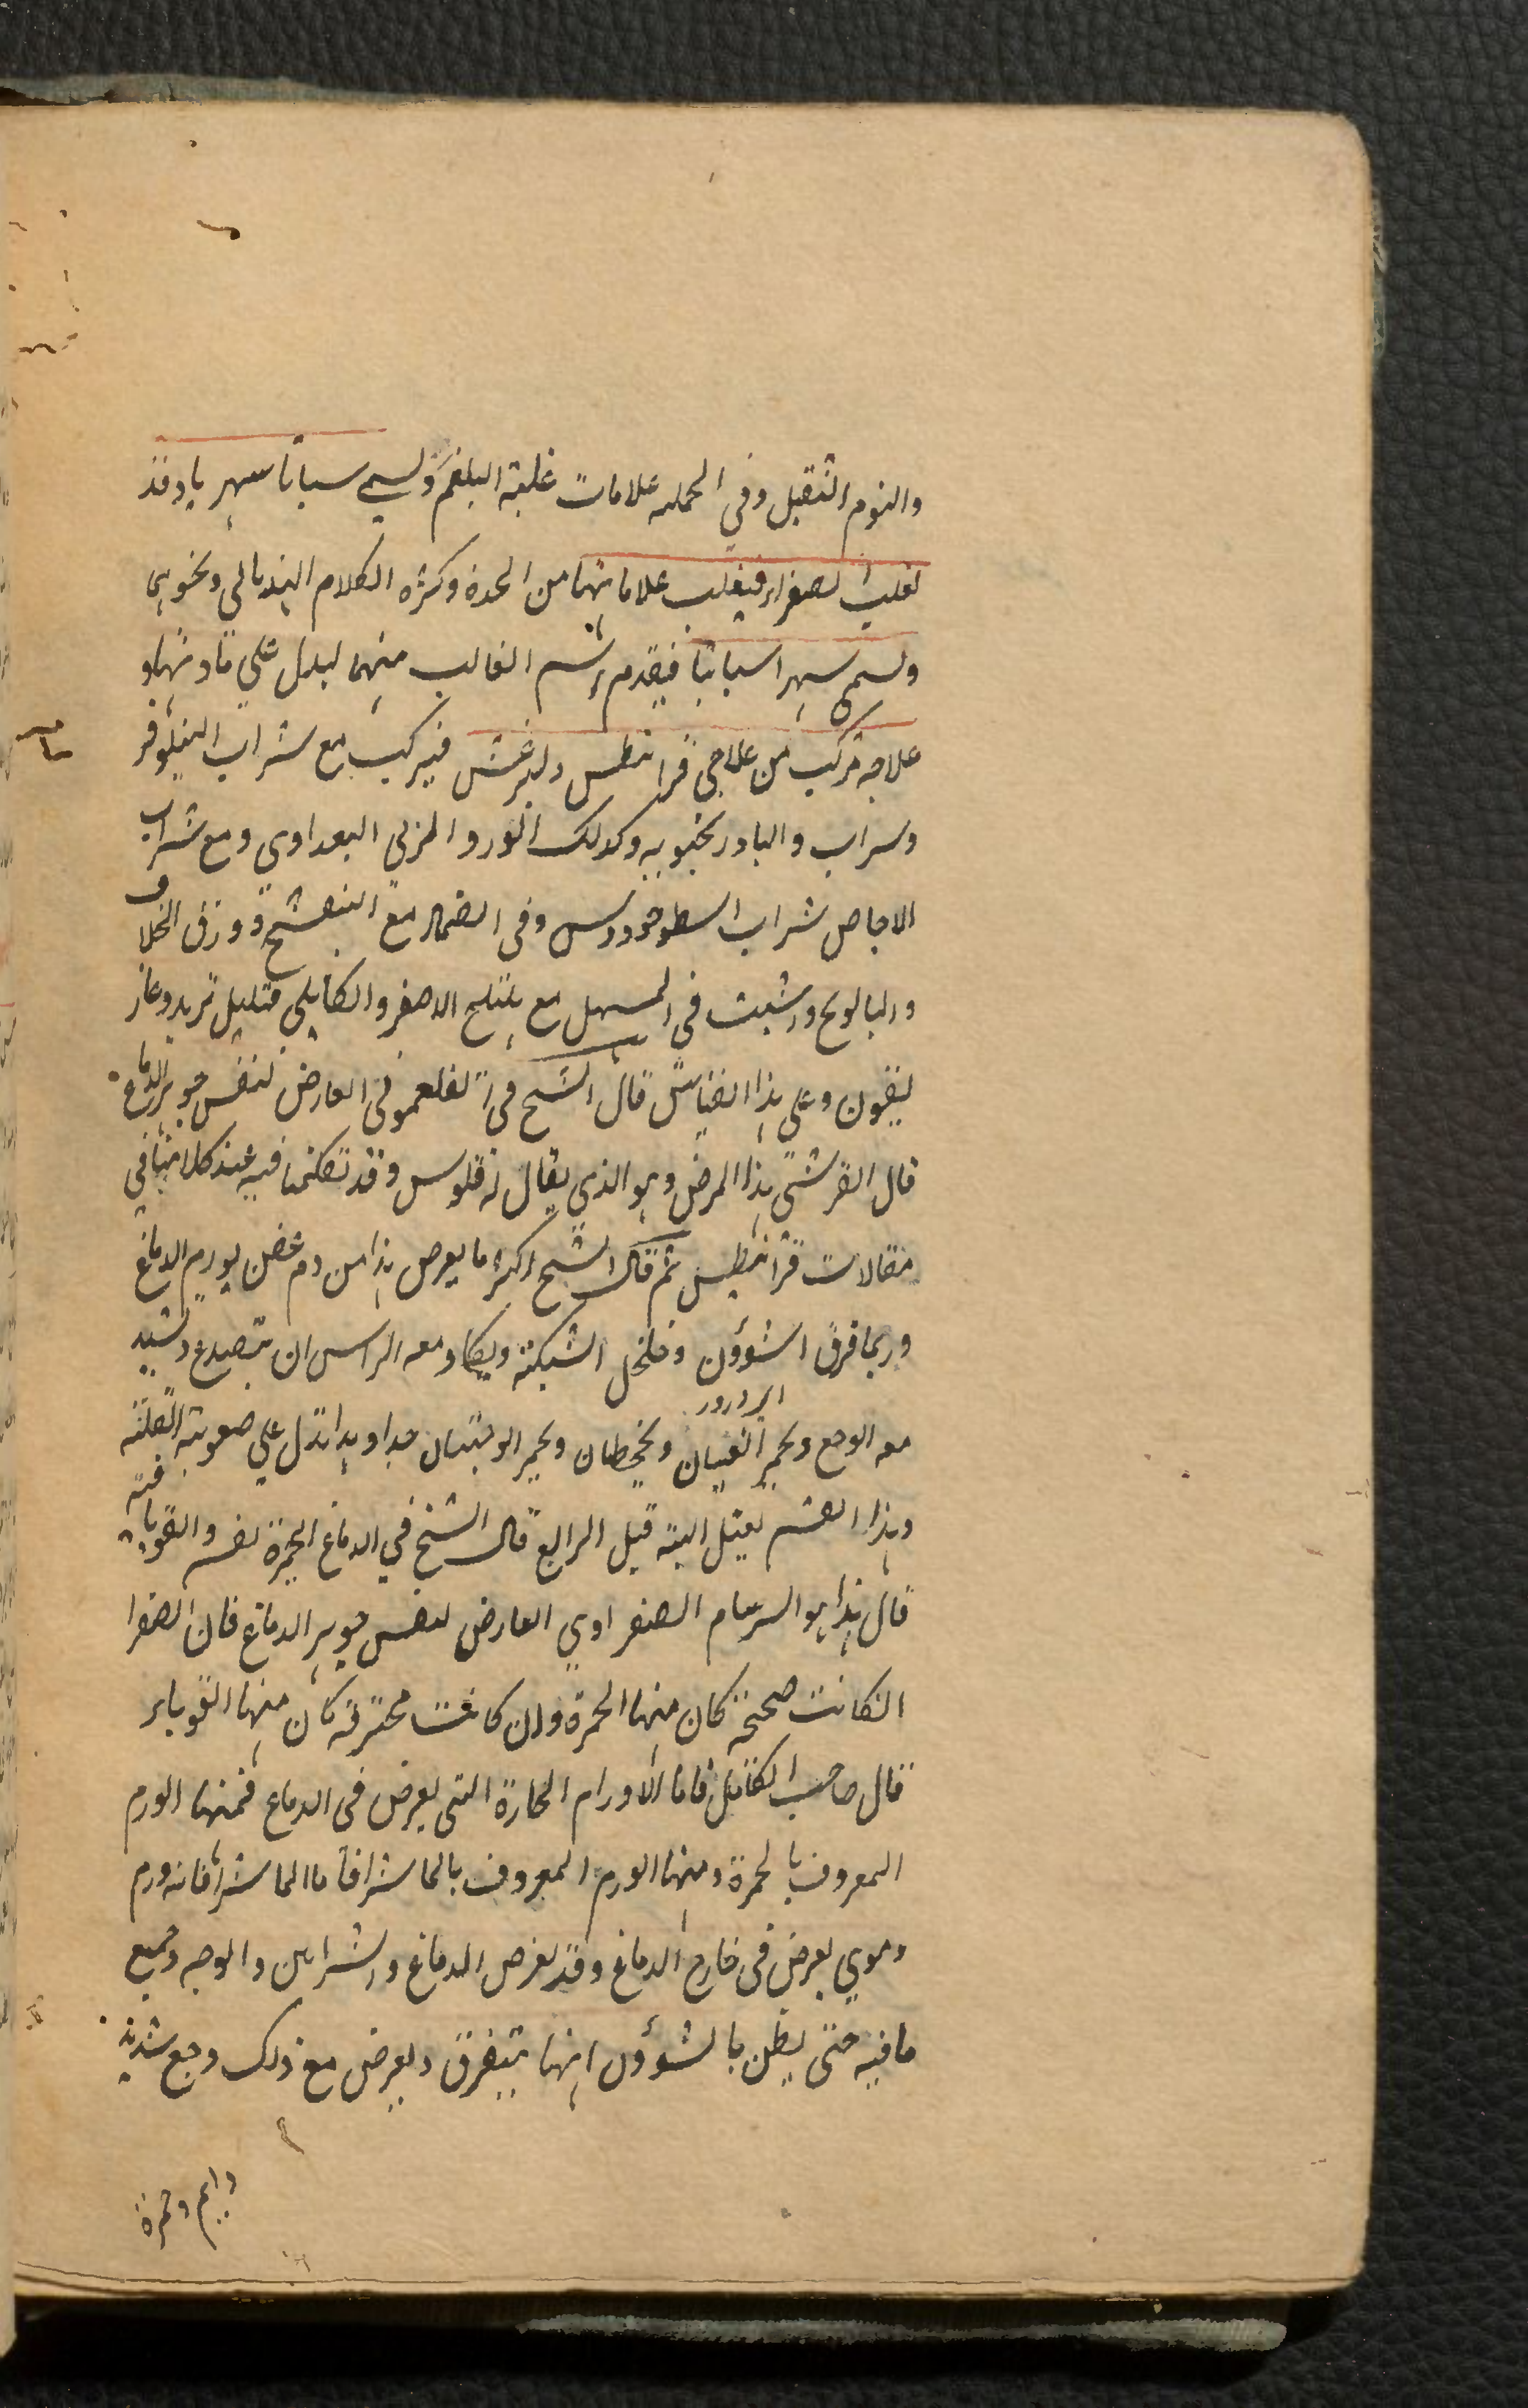 والنوم الثقيل وفي الجمله علامات غلبة البلغم وليسمي سباتا سهريا وقد
تغلب الصفراء فيغلب علاماتها من الحدة وكثره الكلام الهذياني ونحوهما
ويسمي سهرا سباتيا فيقدم اسم الغالب منهما ليدل علي مادتها و
علاجه مركب من علاجي قرانيطس وليثرغس فيركب مع شراب النيلوفر
وشراب والبادرنجبويه وكذلك الورد المزلي البغدادي ومع شراب
الاجاص شراب اسطوخودوس وفي الضماد مع البنفسج وورق الخلاف
والبابونج والشبت في المسهل مع هليلج الاصفر والكابلي قليل تربد وغار
يقون وعلي هذا القياس قال الشيخ في الفلغموني العارض لنفس جوهر الدماغ
قال القرشي هذا المرض وهو الذي يقال له سقاقلوس وقد تكلمنا فيه عند كلامنا في
مقالات قرانيطس ثم قال الشيخ اكثر ما يعرض هذا من دم عفن يورم الدماغ
وربما فرق الشؤون وخلخل الشبكة ويكاد معه الراس ان يتصدع ويشتد
معه الوجع ويحمر العينان ويجحظان ويحمر الوجنتان جدا وهذا يدل علي صعوبة العلة
وهذا القسم يقتل البتة قبل الرابع قال الشيخ في الدماغ الحمرة نفسه والقوباء فيه
قال هذا هو السرسام الصفراوي العارض لنفس جوهر الدماغ فان الصفرا
ان كانت صحيحة كان منها الحمرة وان كانت محترقه كان منها القوباء
قال صاحب الكامل فاما الاورام الحارة التي يعرض في الدماغ فمنها الورم
المعروف بالحمرة ومنها الورم المعروف بالماشرا فاما الماشرا فانه ورم
دموي يعرض في خارج الدماغ وقد يعرض الدماغ والشرايين والوجه وجميع
ما فيه حتي يظن بالشؤون انها يتفرق ويعرض مع ذلك وجع شديد
دايم وحمرة